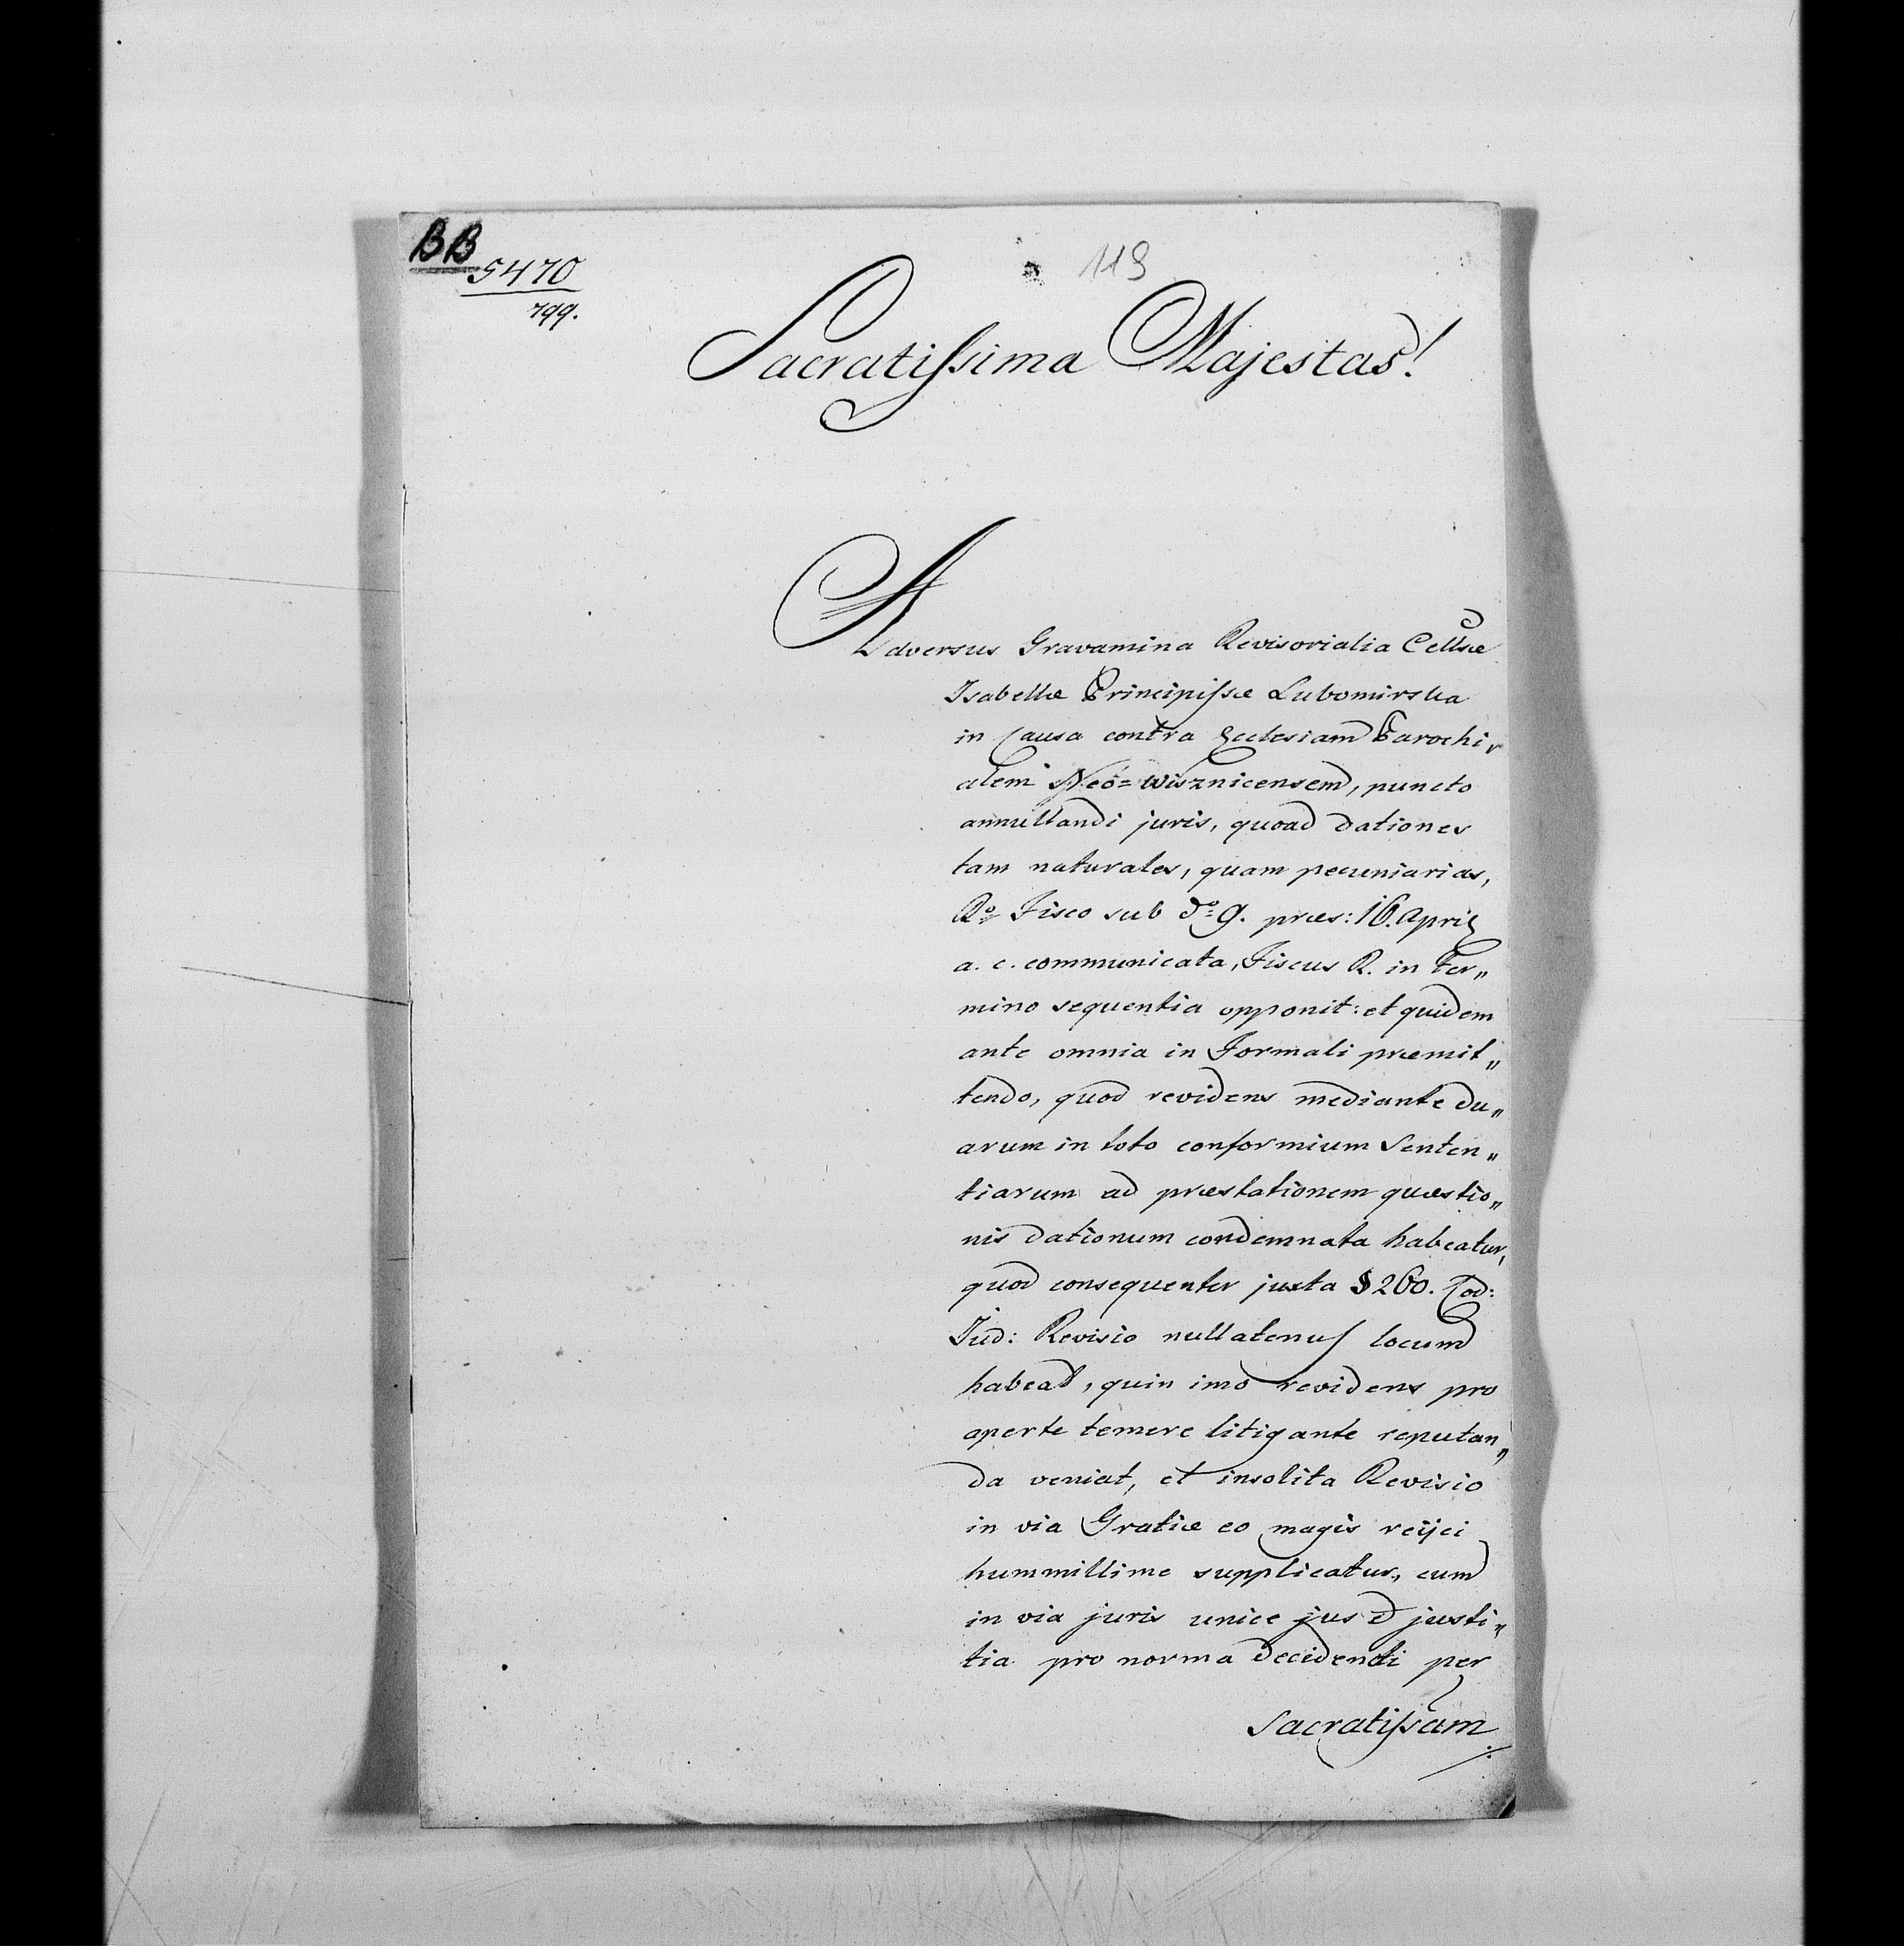 BB
5470
799.
119
Sacratissima Majestas!
Adversus Gravamina Revisorialia Cellsæ
Isabellæ Principissæ Lubomirska
in Causa contra Ecclesiam Parochi„
alem Neó=Wisznicensem, puncto
annullandi juris, quoad dationes
tam naturales, quam pecuniarias,
Ro Fisco sub do 9. præs: 16. April
a. c. communicata, Fiscus R. in Ter„
mino sequentia opponit: et quidem
ante omnia in Formali præmit„
tendo, quod revidens mediante du„
arum in toto conformium Senten„
tiarum ad præstationem quæstio„
nis dationum condemnata habeatur,
quod consequenter juxta § 260. Cod:
Jud: Revisio nullatenus locum
habeat, quin imo revidens pro
aperte temere litigante reputan„
da veniat, et insolita Revisio
in via Gratiæ eo magis reijci
hummillime supplicatur, cum
in via juris unice jus et justi„
tia pro norma decidendi per
Sacratissam